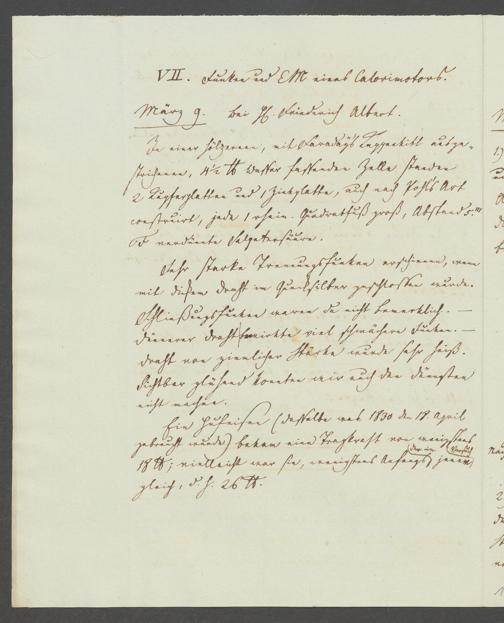 VII. Funken und EM eines Calorimotors.
März 9. bei H. Friederich Albert.
In einer hölzernen, mit Faradays Kappenkitt ausge-
strichenen, 4½ ℔ Wasser fassenden Zelle standen
2 Kupferplatten und 1 Zinkplatte, auch nach Art
construirt, jede 1 rhein. Quadratfuß groß, Abstand 5'''
verdünnte Salpetersäure.
Sehr starke Trennungsfunken erschienen, wenn
mit dickem Draht in Quecksilber geschlossen wurde.
Schließungsfunken waren da nicht bemerklich. —
dünnerer Draht bewirkte viel schwächere Funken. —
Draht von ziemlicher Stärke wurde sehr heiß.
Sichtbar glühend konnten wir auch den dünnsten
nicht machen.
Ein Hufeisen (dasselbe was 1830 den 18 April
gebraucht wurde) bekam eine Tragkraft von wenigstens
18 ℔; vielleicht war sie, wenigstens Anfangs, jener
gleich, d. h. 26 ℔.